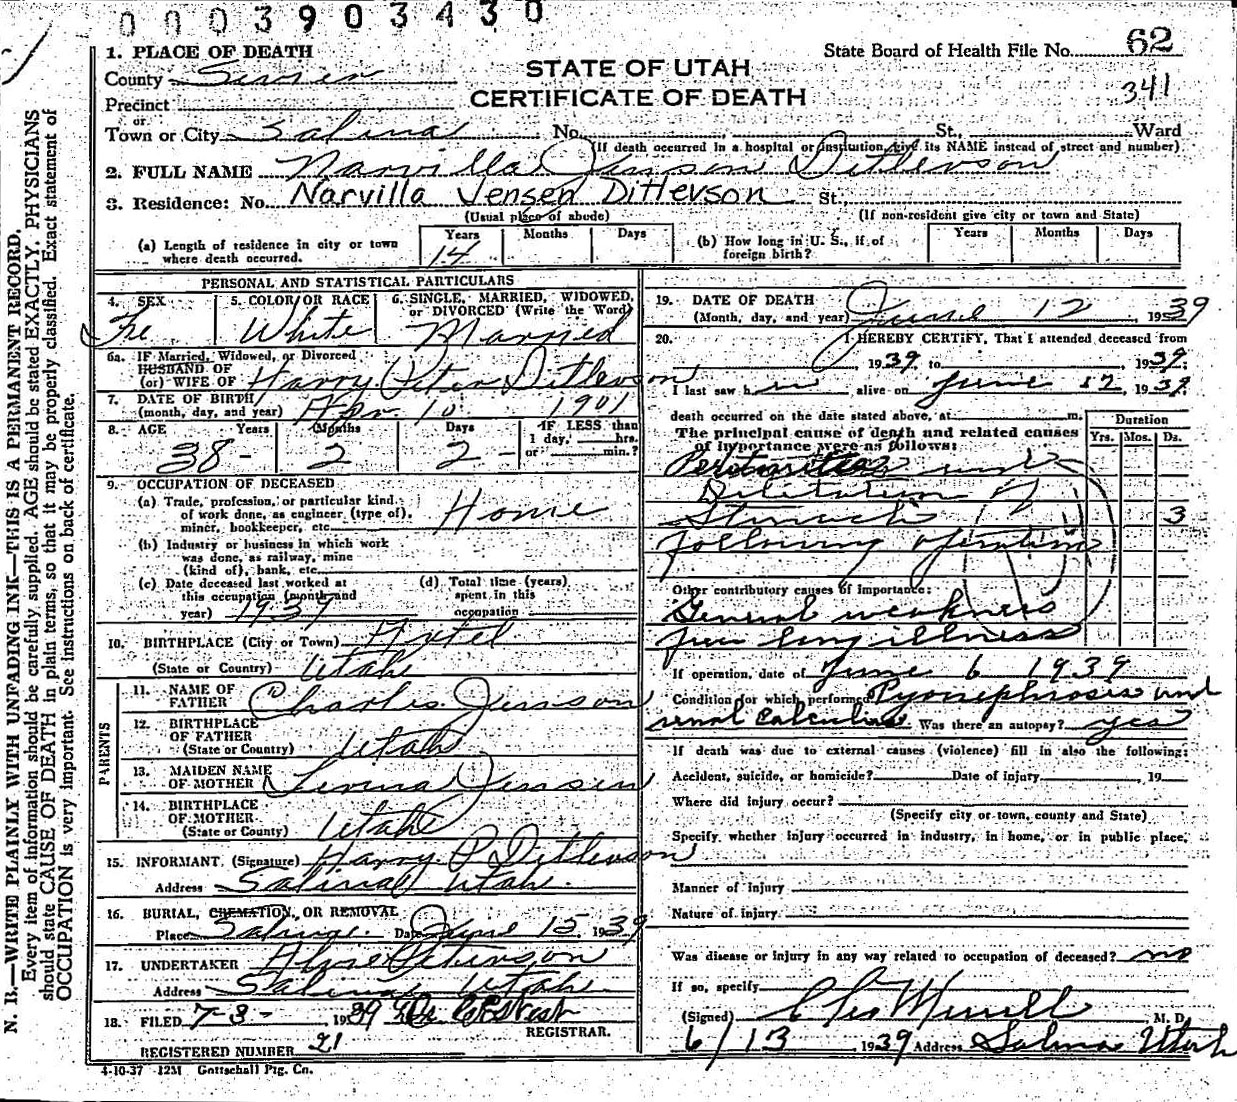 0003903430
1. PLACE OF DEATH
State Board of Health File No. 62
County Sevier
STATE OF UTAH
341
Precinct
CERTIFICATE OF DEATH
or
Town or City Salina No. St., Ward
(If death occurred in a hospital or institution, give its NAME instead of street and number)
2. FULL NAME Narvilla Jenson Ditlevson
3. Residence: No. Narvilla Jensen Ditlevson St.,
(Usual place of abode) (If non-resident give city or town and State)
(a) Length of residence in city or town where death occurred. Years 14 Months Days
(b) How long in U. S., if of foreign birth? Years Months Days
PERSONAL AND STATISTICAL PARTICULARS
4. SEX Fe
5. COLOR OR RACE White
6. SINGLE, MARRIED, WIDOWED, or DIVORCED (Write the Word) Married
6a. IF Married, Widowed, or Divorced
HUSBAND OF
(or) WIFE OF Harry Peter Ditlevson
7. DATE OF BIRTH
(month, day, and year) Apr. 10 1901
8. AGE Years 38 - Months 2 Days 2 - IF LESS than 1 day, hrs. or min.?
9. OCCUPATION OF DECEASED
(a) Trade, profession, or particular kind of work done, as engineer (type of), miner, bookkeeper, etc. Home
(b) Industry or business in which work was done, as railway, mine (kind of), bank, etc.
(c) Date deceased last worked at this occupation (month and year) 1939
(d) Total time (years) spent in this occupation
10. BIRTHPLACE (City or Town) Axtel
(State or Country) Utah
PARENTS
11. NAME OF FATHER Charles Jenson
12. BIRTHPLACE OF FATHER (State or Country) Utah
13. MAIDEN NAME OF MOTHER Jensen
14. BIRTHPLACE OF MOTHER (State or County) Utah
15. INFORMANT (Signature) Harry P Ditlevson
Address Salina Utah.
16. BURIAL, CREMATION, OR REMOVAL
Place Salina. Date June 15 1939
17. UNDERTAKER Peterson
Address Salina Utah.
18. FILED 7-3- 1939
REGISTRAR.
REGISTERED NUMBER 21
4-10-37 12M Gottschall Ptg. Co.
19. DATE OF DEATH
(Month, day, and year) June 12, 1939
20. I HEREBY CERTIFY, That I attended deceased from
, 1939, to , 1939.
I last saw h alive on June 12, 1939.
death occurred on the date stated above, at m.
The principal cause of death and related causes of importance were as follows:
Duration
Yrs. Mos. Ds.
Peritonitis and
Dilitation of
Stomach 3
following operation
Other contributory causes of importance:
General weakness
from long illness
If operation, date of June 6 1939
Condition for which performed Pyonephrosis and
renal calculus Was there an autopsy? yes
If death was due to external causes (violence) fill in also the following:
Accident, suicide, or homicide? Date of injury , 19
Where did injury occur?
(Specify city or town, county and State)
Specify whether injury occurred in industry, in home, or in public place,
Manner of injury
Nature of injury
Was disease or injury in any way related to occupation of deceased? no
If so, specify
(Signed) Merrill M. D.
6/13 1939 Address Salina Utah
N. B.—WRITE PLAINLY WITH UNFADING INK—THIS IS A PERMANENT RECORD.
Every item of information should be carefully supplied. AGE should be stated EXACTLY. PHYSICIANS
should state CAUSE OF DEATH in plain terms, so that it may be properly classified. Exact statement of
OCCUPATION is very important. See instructions on back of certificate.